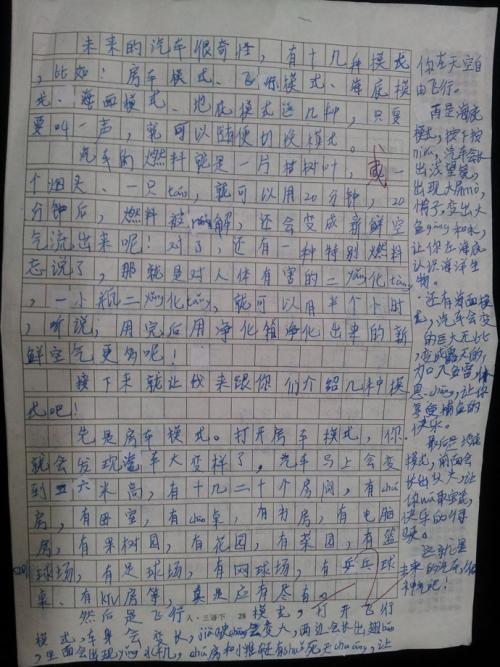 未来的汽车很奇怪，有十几种模式
，比如：房车模式、飞行模式、海底模
式、海面模式、地底模式这几种，只要
要叫一声，就可以随便切换模式。
汽车的燃料就是一片枯树叶，或一
个烟头、一只tāo，就可以用20分钟，20
分钟后，燃料被解，还会变成新鲜空
气流出来呢！对了，还有一种特别燃料
忘说了，那就是对人体有害的二yǎng化tàn，
，一小瓶二yǎng化tàn，就可以用半个小时
，听说，用完后用净化箱净化出来的新
鲜空气更多呢！
接下来就让我来跟你们介绍几种模
式吧！
先是房车模式。打开房车模式，你
就会发现汽车大变样了，汽车马上会变
到五六米高，有十几二十个房间，有chú
房，有卧室，有cān桌，有书房，有电脑
房，有果树园，有花园，有菜园，有篮
球场，有足球场，有网球场，有乒乓球
桌，有KTV房等，真是应有尽有。
然后是飞行模式，打开飞行
模式，车身会变长，会变大，两边会长出翅bǎng
，里面会出现机，chú房和小推研有，让
人·三语下 28
你在天空自
由飞行。
再是海底
模式，按下按
niǔ，汽车会长
出潜望镜，
出现大屏mò，
椅子，变出大
鱼和水，
让你在海底
认识海洋生
物。
还有海面模
式，汽车会变
的巨大无比，
变成露天的，
快乐。
最后是地底
模式，前面会
长出让
你
快乐的冒
险。
这就是
未来的汽车，很
神奇吧！